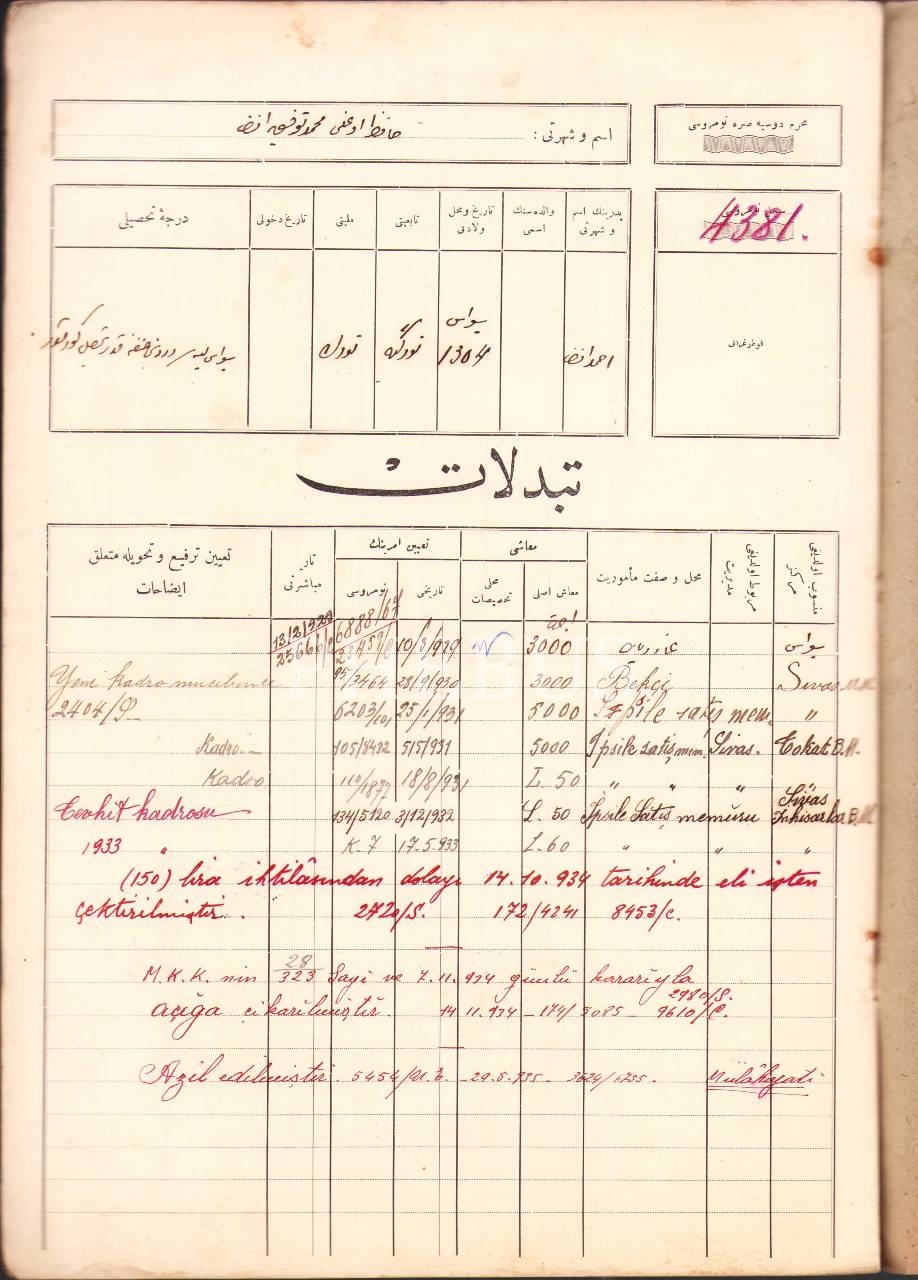 محرم دوسیه صره نومروسی
اسم و شهرتی : حافظ اوغلی محمد توفیق افندی
4381.
پدرینك اسم و شهرتی
والده‌سنك اسمی
تاریخ ومحل ولادتی
تابعیتی
ملیتی
تاریخ دخولی
درجهٔ تحصیلی
فوطوغرافی
احمد افندی
سیواس
1304
سیواس
تبدلات
منسوب اولدیغی مركز
مربوط اولدیغی مدیریت
محل و صفت مأموریت
معاشی
معاش اصلی
محلی تخصیصات
تعیین امرینك
تاریخی
نومروسی
تعیین ترفیع و تحویله متعلق ایضاحات
13/2/929 6888/67
سیواس 3000 10/3/929
Yeni kadro mucibince 95/3464 28/9/930 3000 Bekçi Sivas
2404/S 6203/101 25/1/931 5000 İpsile satış mem. "
Kadro.- 105/8432 5/5/931 5000 İpsile satış mem. Sivas. Tokat B.M.
Kadro 110/1877 18/8/931 L. 50 " " "
Tevhit kadrosu 134/5120 3/12/932 L. 50 İpsile Satış memuru Sivas İnhisarlar B.M.
1933 " K. 7 17.5.933 L. 60 " " "
(150) lira ihtilâsından dolayı 14.10.934 tarihinde eli işten
çektirilmiştir. 2720/S. 172/4241 8453/c.
28
M.K.K. nin 323 Sayi ve 7.11.934 günlü karariyla
2980/S.
açığa çikarilmiştir. 14 11.934 - 174/5085 - 9610/C.
Azil edilmiştir. 5454/ - 29.5.935 - Mülâkaati